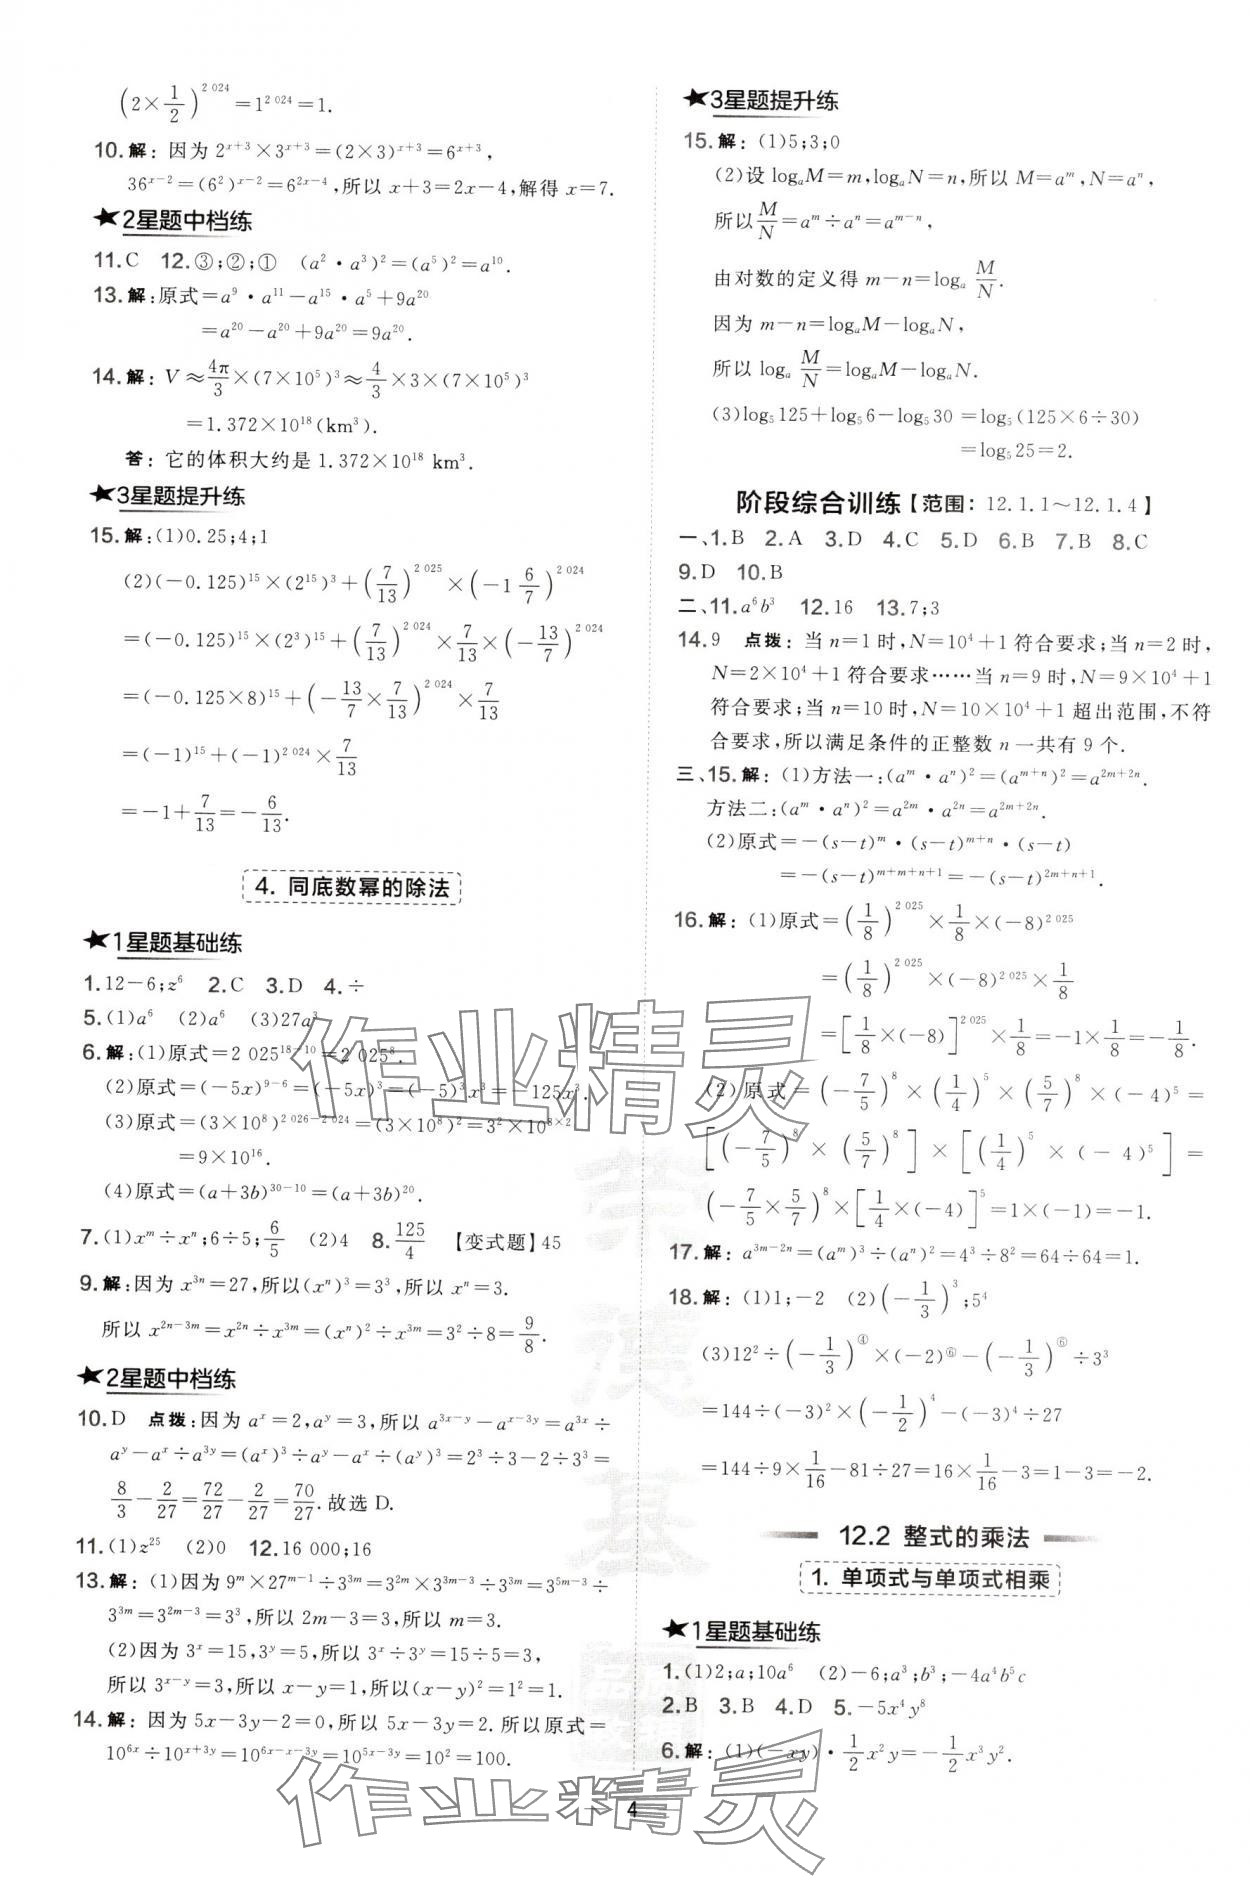 (2×1/2)^{2 024}=1^{2 024}=1.
10.解：因为 2^{x+3}×3^{x+3}=(2×3)^{x+3}=6^{x+3}，
36^{x-2}=(6^2)^{x-2}=6^{2x-4},所以 x+3=2x-4,解得 x=7.
★2星题中档练
11.C 12.③;②;① (a^2·a^3)^2=(a^5)^2=a^{10}.
13.解:原式=a^9·a^{11}-a^{15}·a^5+9a^{20}
=a^{20}-a^{20}+9a^{20}=9a^{20}.
14.解：V≈4π/3×(7×10^5)^3≈4/3×3×(7×10^5)^3
=1.372×10^{18}(km^3).
答：它的体积大约是 1.372×10^{18} km^3.
★3星题提升练
15.解:(1)0.25;4;1
(2)(-0.125)^{15}×(2^{15})^3+(7/13)^{2 025}×(-1 6/7)^{2 024}
=(-0.125)^{15}×(2^3)^{15}+(7/13)^{2 024}×7/13×(-13/7)^{2 024}
=(-0.125×8)^{15}+(-13/7×7/13)^{2 024}×7/13
=(-1)^{15}+(-1)^{2 024}×7/13
=-1+7/13=-6/13.
4. 同底数幂的除法
★1星题基础练
1.12-6;z^6 2.C 3.D 4.÷
5.(1)a^6 (2)a^6 (3)27a^3
6.解:(1)原式=2 025^{18-10}=2 025^8.
(2)原式=(-5x)^{9-6}=(-5x)^3=(-5)^3x^3=-125x^3.
(3)原式=(3×10^8)^{2 026-2 024}=(3×10^8)^2=3^2×10^{8×2}
=9×10^{16}.
(4)原式=(a+3b)^{30-10}=(a+3b)^{20}.
7.(1)x^m÷x^n;6÷5;6/5 (2)4 8.125/4 【变式题】45
9.解:因为 x^{3n}=27,所以(x^n)^3=3^3,所以 x^n=3.
所以 x^{2n-3m}=x^{2n}÷x^{3m}=(x^n)^2÷x^{3m}=3^2÷8=9/8.
★2星题中档练
10.D 点拨:因为 a^x=2,a^y=3,所以 a^{3x-y}-a^{x-3y}=a^{3x}÷
a^y-a^x÷a^{3y}=(a^x)^3÷a^y-a^x÷(a^y)^3=2^3÷3-2÷3^3=
8/3-2/27=72/27-2/27=70/27.故选 D.
11.(1)z^{25} (2)0 12.16 000;16
13.解:(1)因为 9^m×27^{m-1}÷3^{3m}=3^{2m}×3^{3m-3}÷3^{3m}=3^{5m-3}÷
3^{3m}=3^{2m-3}=3^3,所以 2m-3=3,所以 m=3.
(2)因为 3^x=15,3^y=5,所以 3^x÷3^y=15÷5=3,
所以 3^{x-y}=3,所以 x-y=1,所以(x-y)^2=1^2=1.
14.解：因为 5x-3y-2=0,所以 5x-3y=2.所以原式=
10^{6x}÷10^{x+3y}=10^{6x-x-3y}=10^{5x-3y}=10^2=100.
★3星题提升练
15.解：(1)5;3;0
(2)设 log_aM=m,log_aN=n,所以 M=a^m,N=a^n,
所以M/N=a^m÷a^n=a^{m-n},
由对数的定义得 m-n=log_a M/N.
因为 m-n=log_aM-log_aN,
所以 log_a M/N=log_aM-log_aN.
(3)log_5 125+log_5 6-log_5 30 =log_5(125×6÷30)
=log_5 25=2.
阶段综合训练【范围：12.1.1～12.1.4】
一、1.B 2.A 3.D 4.C 5.D 6.B 7.B 8.C
9.D 10.B
二、11.a^6b^3 12.16 13.7;3
14.9 点拨：当 n=1 时,N=10^4+1 符合要求;当 n=2 时,
N=2×10^4+1 符合要求……当 n=9 时,N=9×10^4+1
符合要求;当 n=10 时,N=10×10^4+1 超出范围,不符
合要求,所以满足条件的正整数 n 一共有 9 个.
三、15.解：(1)方法一:(a^m·a^n)^2=(a^{m+n})^2=a^{2m+2n}.
方法二:(a^m·a^n)^2=a^{2m}·a^{2n}=a^{2m+2n}.
(2)原式=-(s-t)^m·(s-t)^{m+n}·(s-t)
=-(s-t)^{m+m+n+1}=-(s-t)^{2m+n+1}.
16.解：(1)原式=(1/8)^{2 025}×1/8×(-8)^{2 025}
=(1/8)^{2 025}×(-8)^{2 025}×1/8
=[1/8×(-8)]^{2 025}×1/8=-1×1/8=-1/8.
(2)原式=(-7/5)^8×(1/4)^5×(5/7)^8×(-4)^5=
[(-7/5)^8×(5/7)^8]×[(1/4)^5×(-4)^5]=
(-7/5×5/7)^8×[1/4×(-4)]^5=1×(-1)=-1.
17.解：a^{3m-2n}=(a^m)^3÷(a^n)^2=4^3÷8^2=64÷64=1.
18.解：(1)1;-2 (2)(-1/3)^3;5^4
(3)12^2÷(-1/3)^④×(-2)^⑥-(-1/3)^⑥÷3^3
=144÷(-3)^2×(-1/2)^4-(-3)^4÷27
=144÷9×1/16-81÷27=16×1/16-3=1-3=-2.
12.2 整式的乘法
1. 单项式与单项式相乘
★1星题基础练
1.(1)2;a;10a^6 (2)-6;a^3;b^3;-4a^4b^5c
2.B 3.B 4.D 5.-5x^4y^8
6.解:(1)(-xy)·1/2x^2y=-1/2x^3y^2.
4
作业精灵
作业精灵